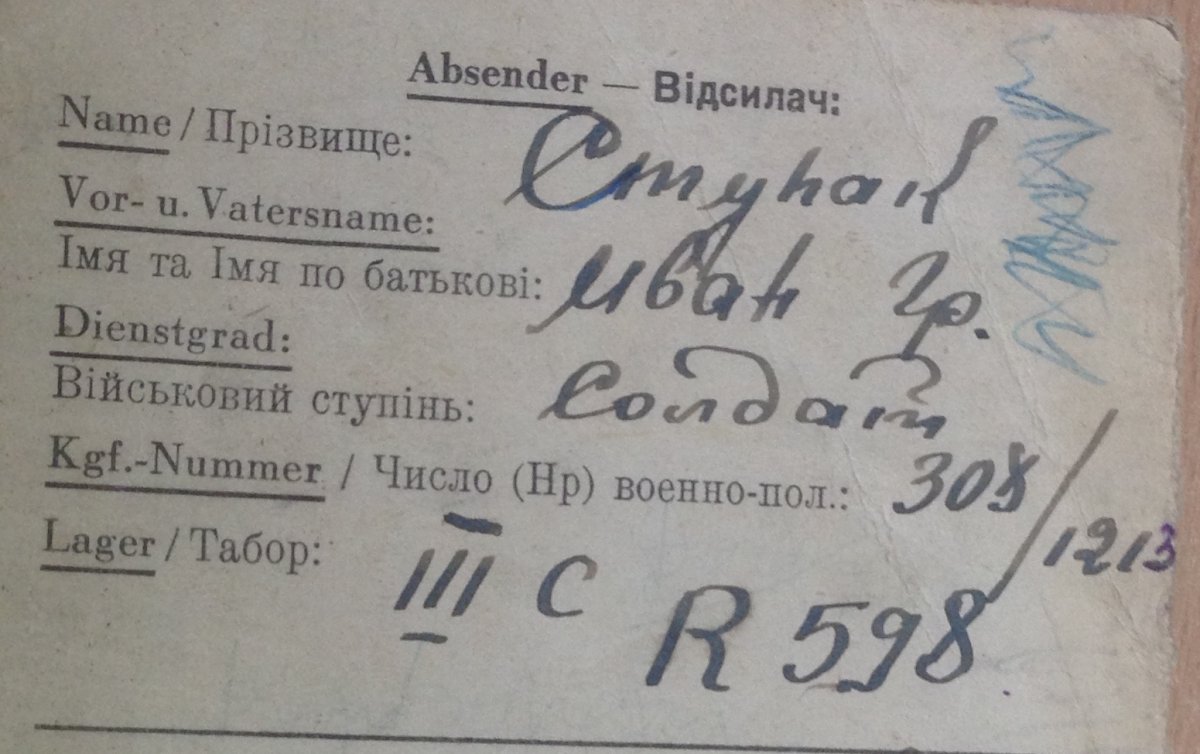 Absender — Відсилач:
Name / Прізвище: Ступак
Vor- u. Vatersname:
Імя та Імя по батькові: Иван Гр.
Dienstgrad:
Військовий ступінь: Солдат
Kgf.-Nummer / Число (Нр) военно-пол.: 308/1213
Lager / Табор: III C R 598